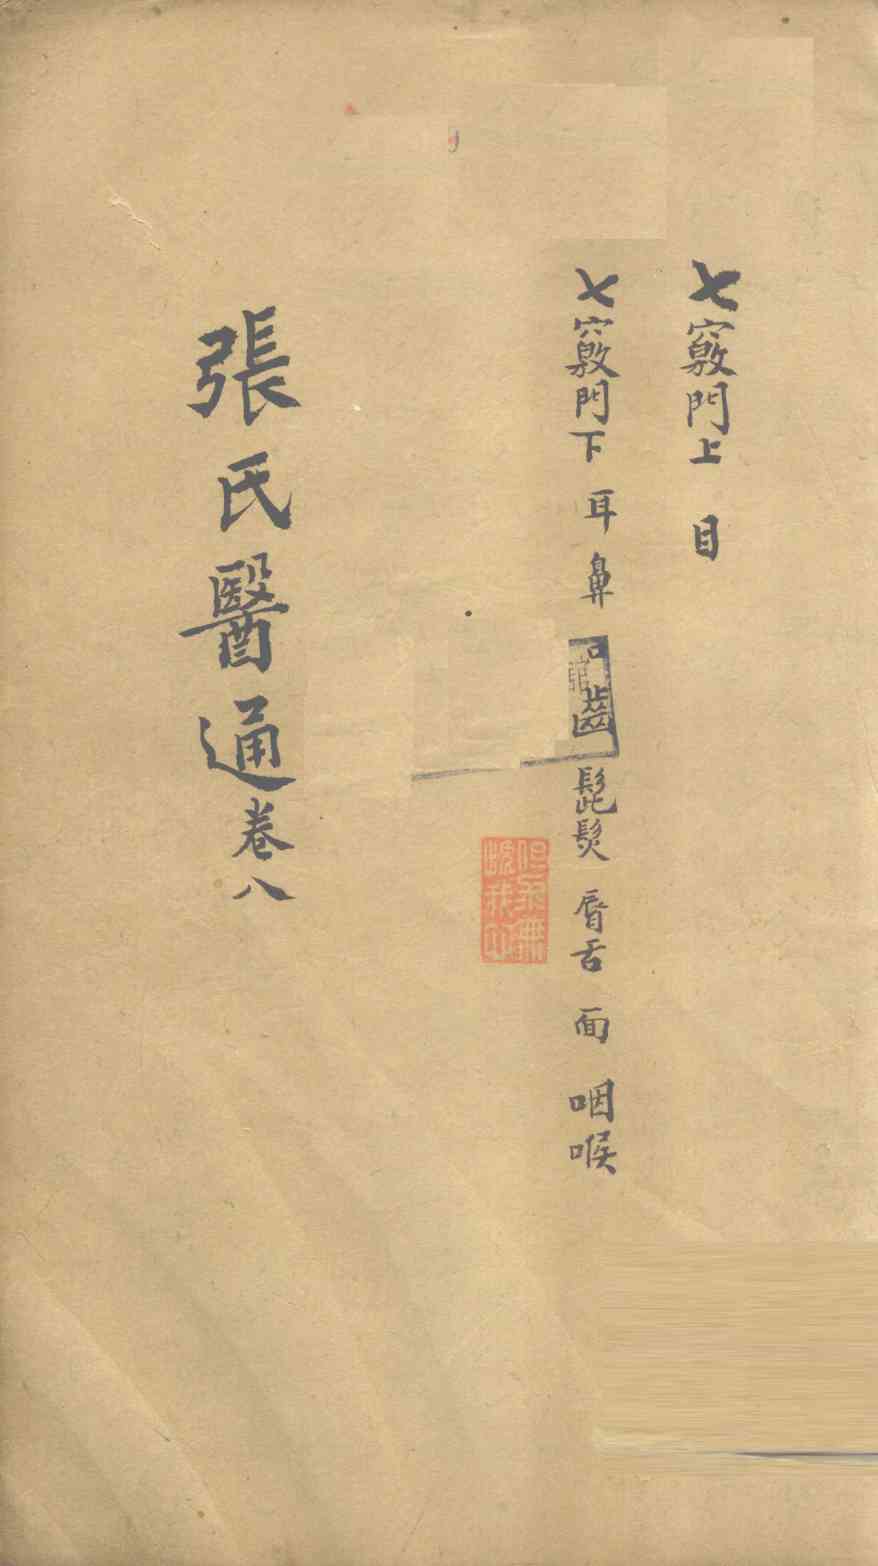 七竅門上 目
七竅門下 耳 鼻 口 齒 髭髮 脣舌 面 咽喉
張氏醫通卷八